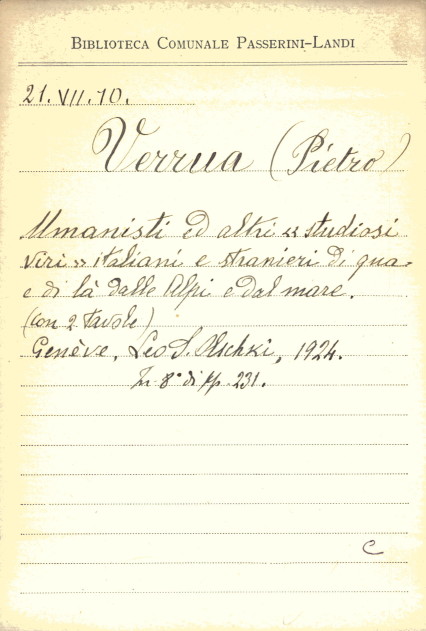 BIBLIOTECA COMUNALE PASSERINI-LANDI
21.VII.10.
Verrua (Pietro)
Umanisti ed altri « studiosi
viri » italiani e stranieri di qua-
e di là dalle Alpi e dal mare.
(con 2 tavole)
Genève, Leo S. Olschki, 1924.
In 8° di pp. 231.
C